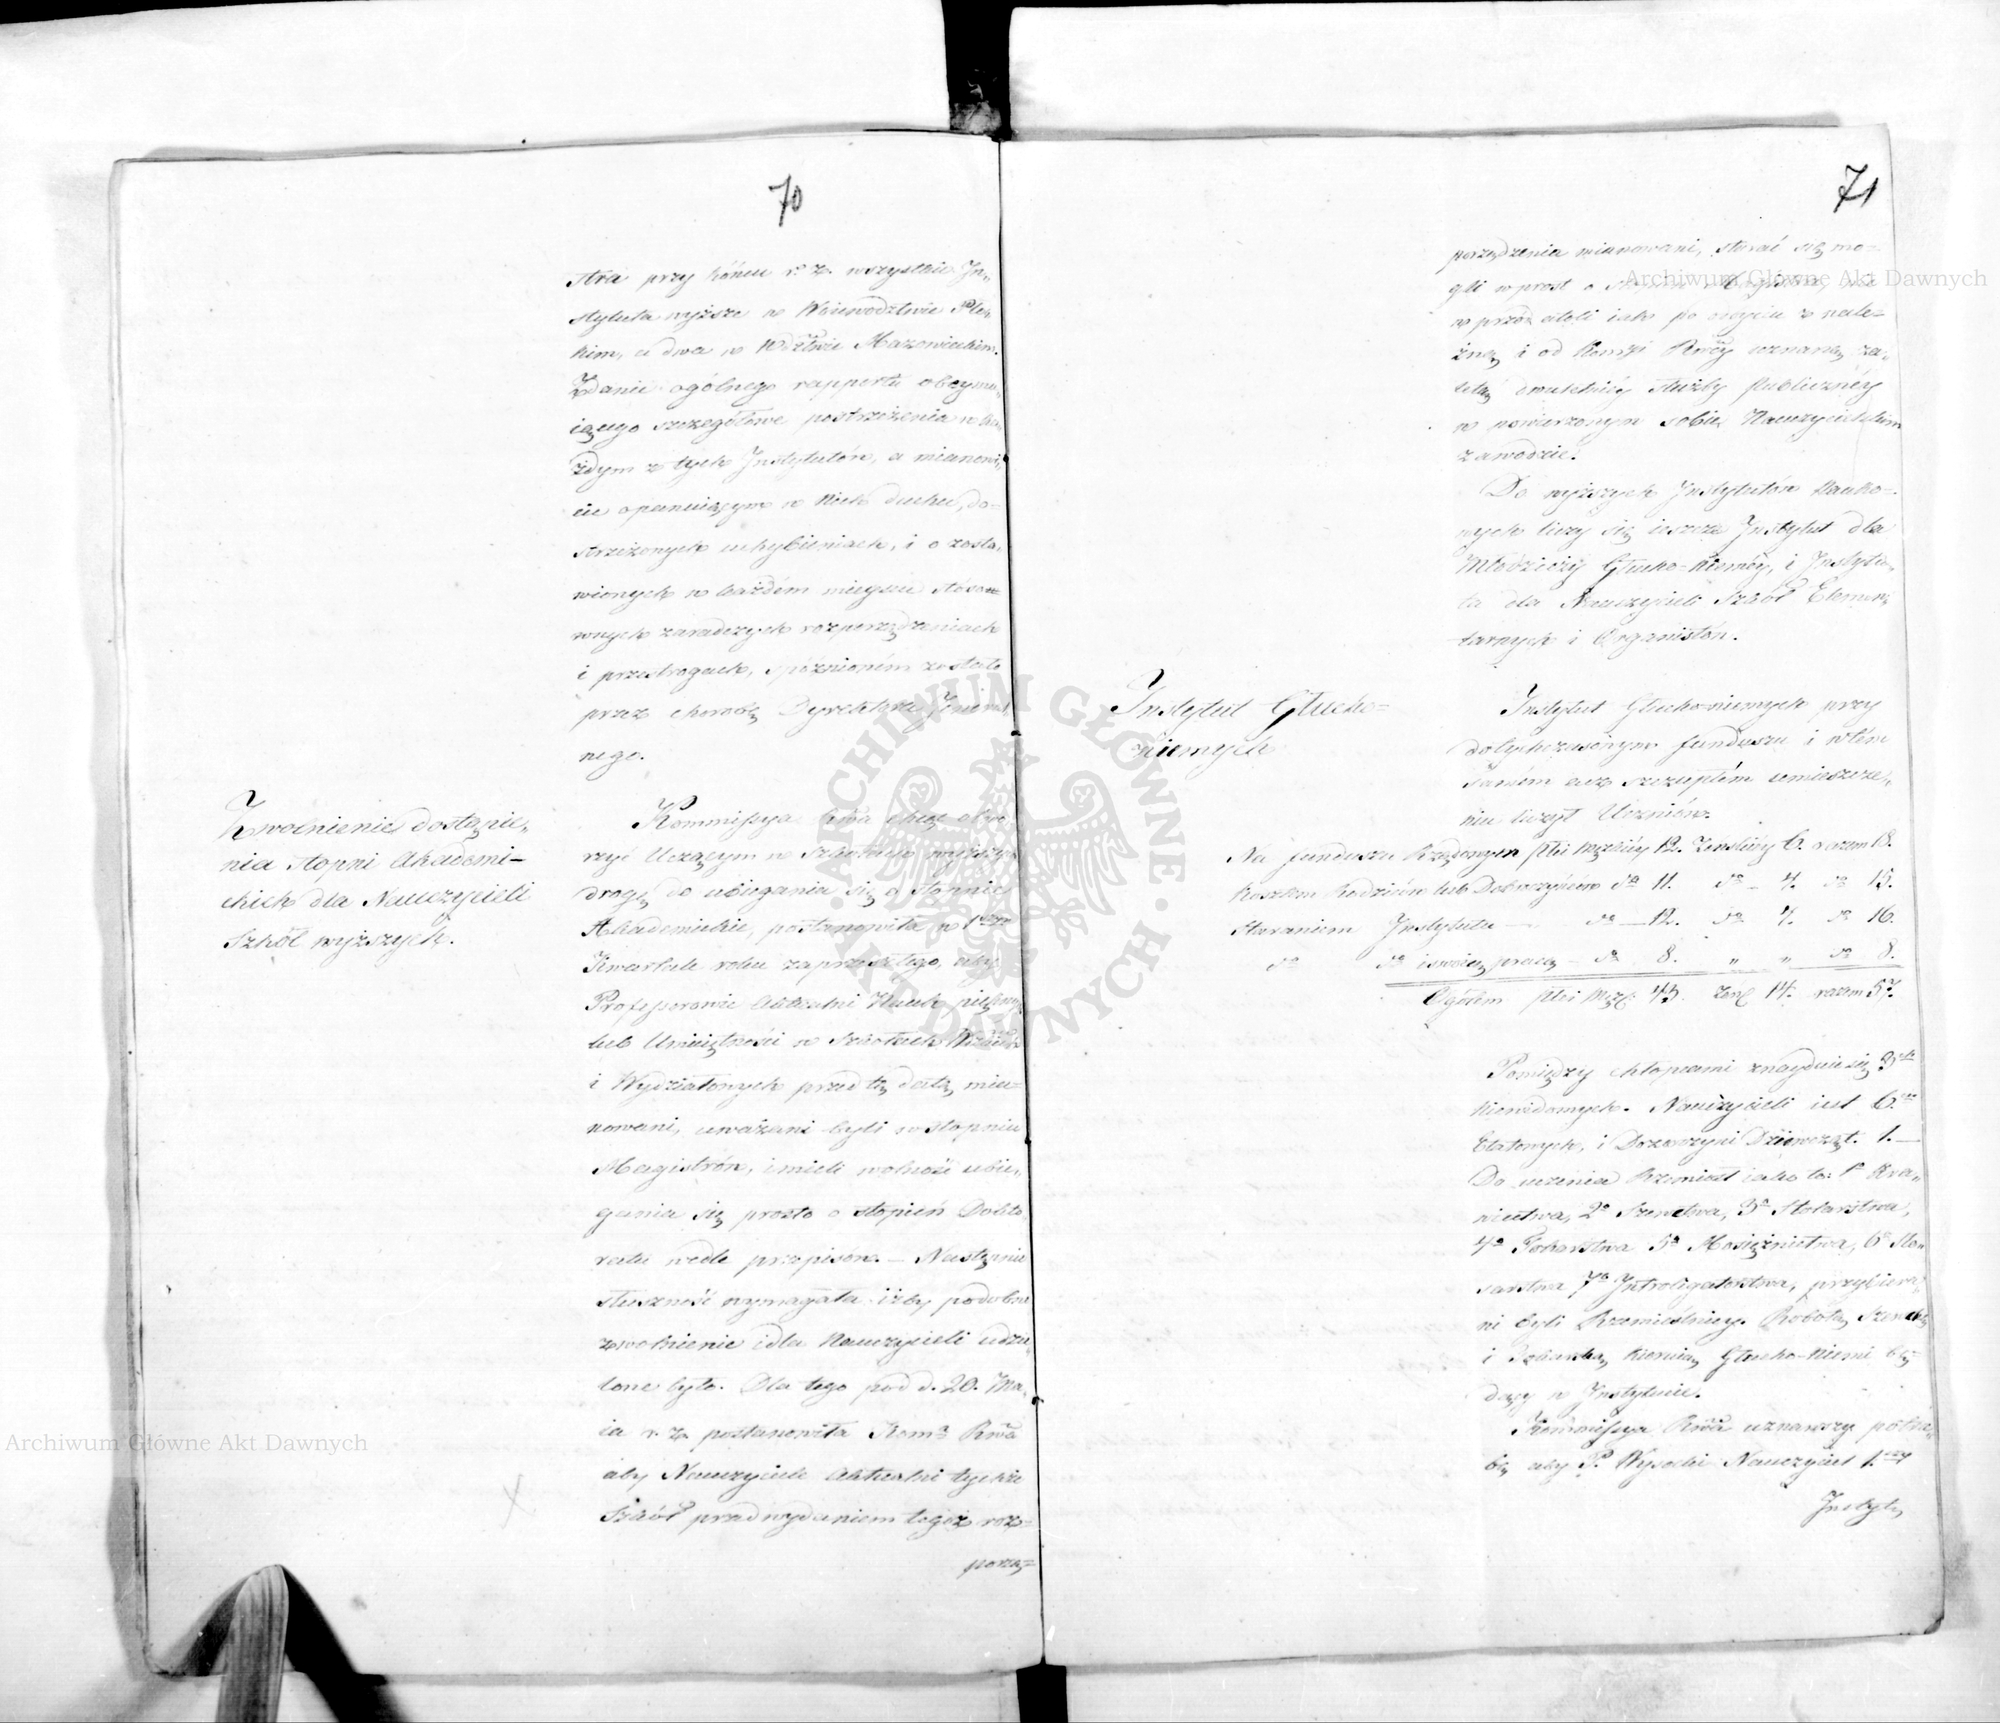 70
stra przy końcu r. z. wszystkie In„
stytuta wyższe w Woiewództwie Płoc
kim, a dwa w Wdztwie Mazowieckim.
Zdanie ogólnego rapportu obeymu„
iącego szczegółowe postrzeżenia w ka„
żdym z tych Instytutów, a mianowi„
cie o panuiącym w nich duchu, do=
strzeżonych uchybieniach, i o zosta„
wionych w każdém mieyscu stósow=
wnych zaradczych rozporządzeniach
i przestrogach, spóźnioném zostało
przez chorobę Dyrektora Jeneral„
nego.
Zwolnienie dostąpie„
nia stopni Akademi=
ckich dla Nauczycieli
Szkół wyższych.
Kommissya Rwa chcąc otwo
rzyć Uczącym w Szkołach wyższych
drogę do ubiegania się o stopnie
Akademickie, postanowiła w 1szym
Kwartale roku zaprzeszłego, aby
Professorowie Aktualni Nauk pięknych
lub Umieiętności w Szkołach Wdzkich
i Wydziałowych przed tą datą mia=
nowani, uważani byli w stopniu
Magistrów, i mieli wolność ubie„
gania się prosto o stopień Dokto
ratu wedle przepisów. — Następnie
słuszność wymagała iżby podobne
zwolnienie i dla Nauczycieli udzie
lone było. Dla tego pod d. 20. Ma„
ia r. z. postanowiła Komа Rwa
aby Nauczyciele Aktualni tychże
Szkół przed wydaniem tegoż roz=
porzą=
71
porządzenia mianowani, starać się mo=
gli wprost o stopień Magistra, nie
w przód atoli iak po odbyciu z nale=
żną i od Komissyi Rwéy uznaną za„
letą dwuletniéy służby publicznéy
w powierzonym sobie Nauczycielskim
zawodzie.
Do wyższych Instytutów Nauko=
wych liczy się ieszcze Instytut dla
Młodzieży Głucho-niemey, i Instytu=
ta dla Nauczycieli Szkół Elemen„
tarnych i Organistów.
Instytut Głucho=
niemych
Instytut Głucho-niemych przy
dotychczasowym funduszu i w tém
samém acz szczupłém umieszcze„
niu liczył Uczniów.
Na funduszu Rządowym płci męzkiéy 12. Żeńskiéy 6. razem 18.
Kosztem Rodziców lub Dobroczyńców do 11. do — 4. do 15.
Staraniem Instytutu — do — 12. do 4. do 16.
do do i swoią pracą — do 8. „ „ do 8.
Ogółem płci Męz: 43. Żeń: 14. razem 57.
Pomiędzy chłopcami znayduie się 3ch
niewidomych. Nauczycieli iest 6ciu
Etatowych, i Dozorczyni Dziewcząt. 1. —
Do uczenia Rzemiosł iako to: 1o Kra„
wiectwa, 2o Szewctwa, 3o Stolarstwa,
4o Tokarstwa 5o Mosiężnictwa, 6o Slo„
sarstwa 7o Introligatorstwa, przybiera„
ni byli Rzemieślnicy. Robotą Szewcką
i Tokarską kieruią Głucho-Niemi bę=
dący w Instytucie.
Kommissya Rwa uznawszy potrze„
bę aby P. Wysocki Nauczyciel 1szy
Instytu